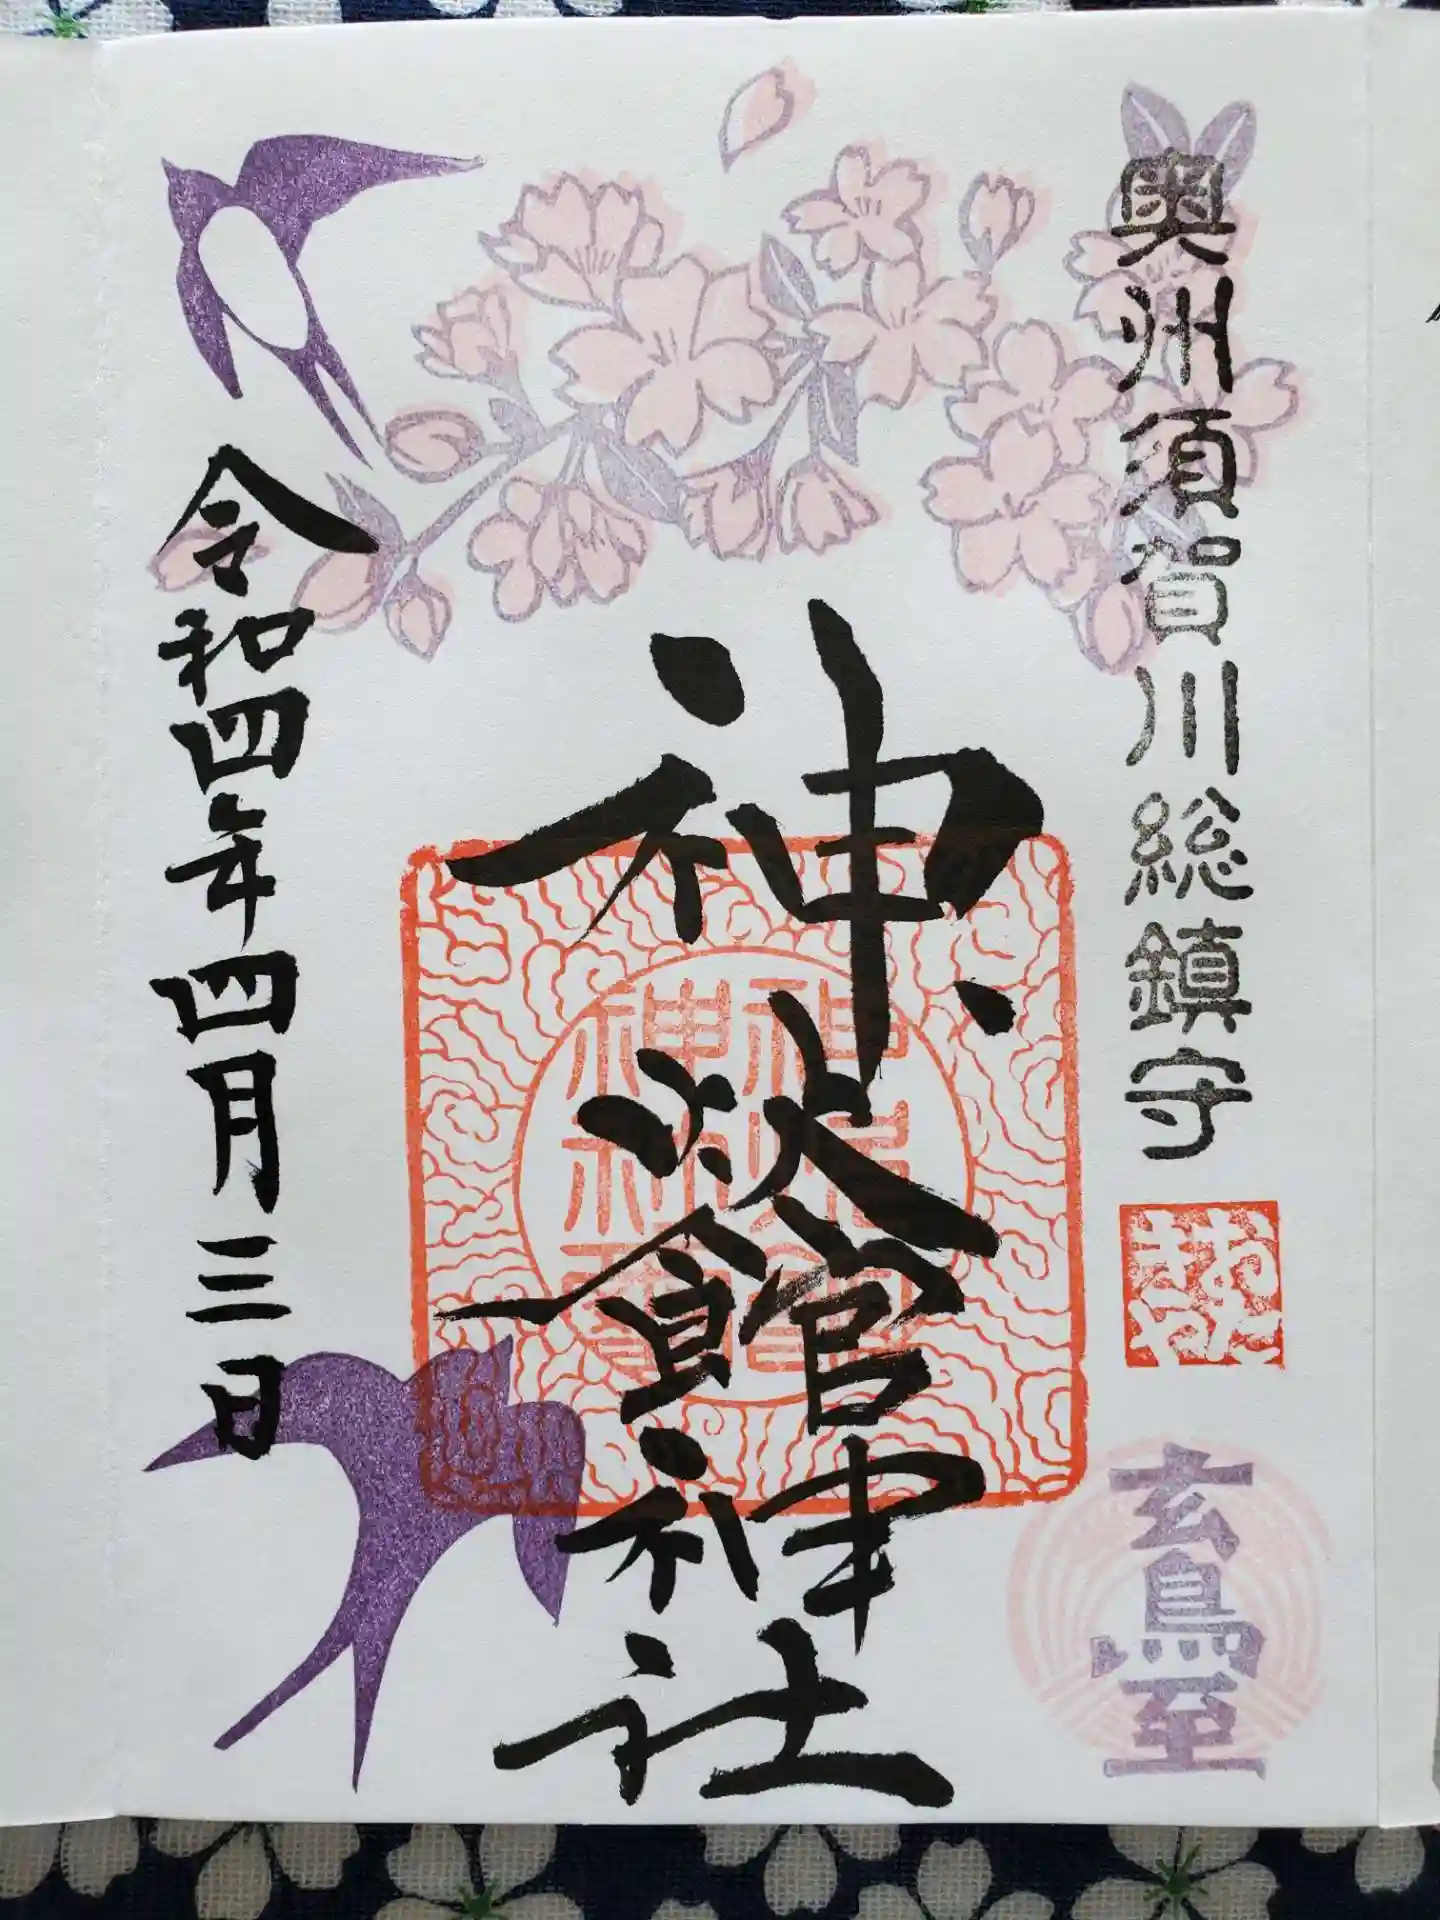 奥州須賀川総鎮守
おたきや
玄鳥至
神炊館神社
令和四年四月三日